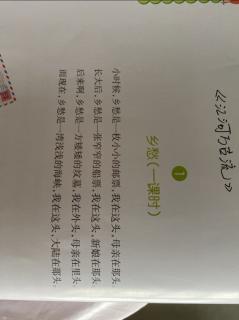 《江河万古流》
1
乡愁(一课时)
小时候,乡愁是一枚小小的邮票,我在这头,母亲在那头
长大后,乡愁是一张窄窄的船票,我在这头,新娘在那头
后来啊,乡愁是一方矮矮的坟墓,我在外头,母亲在里头
而现在,乡愁是一湾浅浅的海峡,我在这头,大陆在那头